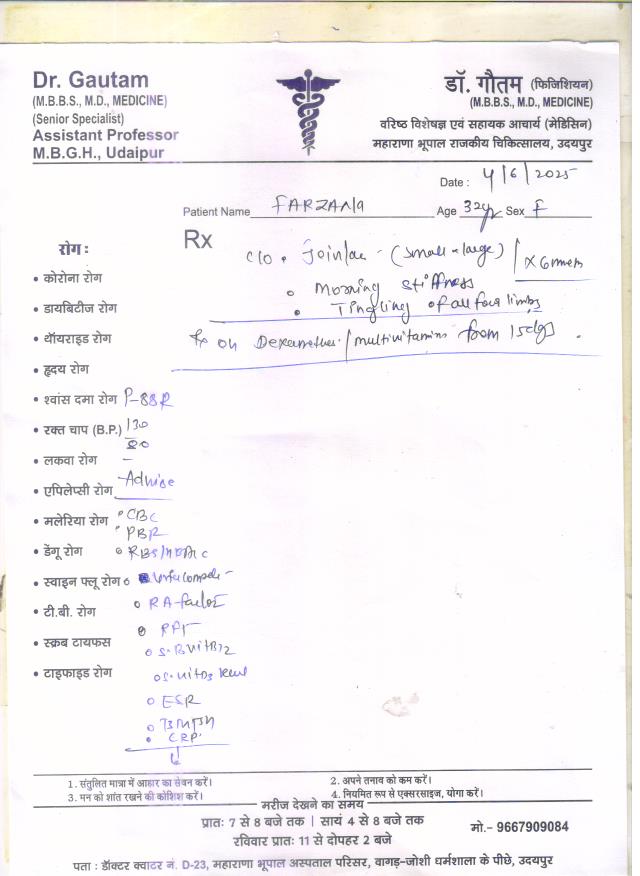 Dr. Gautam
(M.B.B.S., M.D., MEDICINE)
(Senior Specialist)
Assistant Professor
M.B.G.H., Udaipur
डॉ. गौतम (फिजिशियन)
(M.B.B.S., M.D., MEDICINE)
वरिष्ठ विशेषज्ञ एवं सहायक आचार्य (मेडिसिन)
महाराणा भूपाल राजकीय चिकित्सालय, उदयपुर
Date : 4/6/2025
Patient Name FARZANA Age 32yr Sex F
Rx
C/O • (small - large) / X 6
• Morning stiffness
• Tingling of all four limbs
on / multivitamins from 15
रोग :
• कोरोना रोग
• डायबिटीज रोग
• थॉयराइड रोग
• हृदय रोग
• श्वांस दमा रोग P-88R
• रक्त चाप (B.P.) 130/80
• लकवा रोग –
• एपिलेप्सी रोग Advise
• मलेरिया रोग • CBC
• PBR
• डेंगू रोग • RBS/
• स्वाइन फ्लू रोग •
• टी.बी. रोग • RA-factor
• स्क्रब टायफस
• S. vitB12
• टाइफाइड रोग • S. vitD3
• ESR
• CRP
1. संतुलित मात्रा में आहार का सेवन करें।
2. अपने तनाव को कम करें।
3. मन को शांत रखने की कोशिश करें।
4. नियमित रूप से एक्सरसाइज, योगा करें।
मरीज देखने का समय
प्रातः 7 से 8 बजे तक | सायं 4 से 8 बजे तक
रविवार प्रातः 11 से दोपहर 2 बजे
मो.- 9667909084
पता : डॉक्टर क्वाटर नं. D-23, महाराणा भूपाल अस्पताल परिसर, वागड़-जोशी धर्मशाला के पीछे, उदयपुर